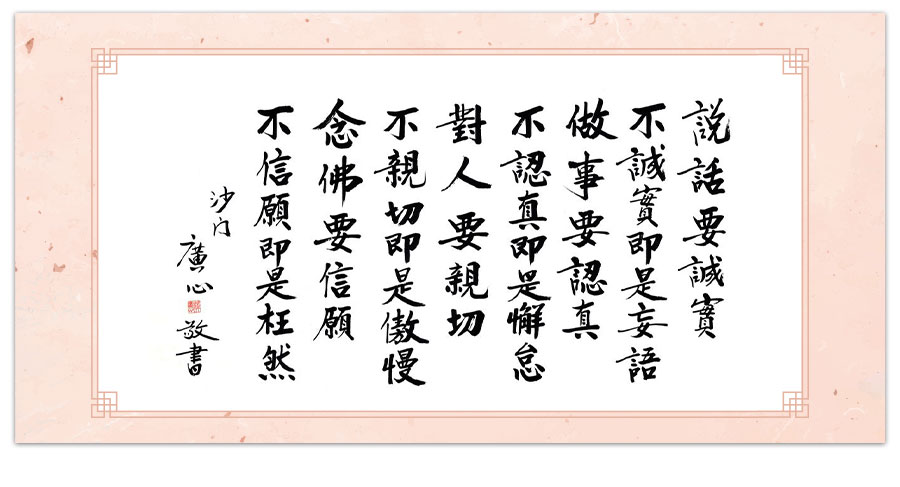 説話要誠實
不誠實即是妄語
做事要認真
不認真即是懈怠
對人要親切
不親切即是傲慢
念佛要信願
不信願即是枉然
沙門
廣心
敬書